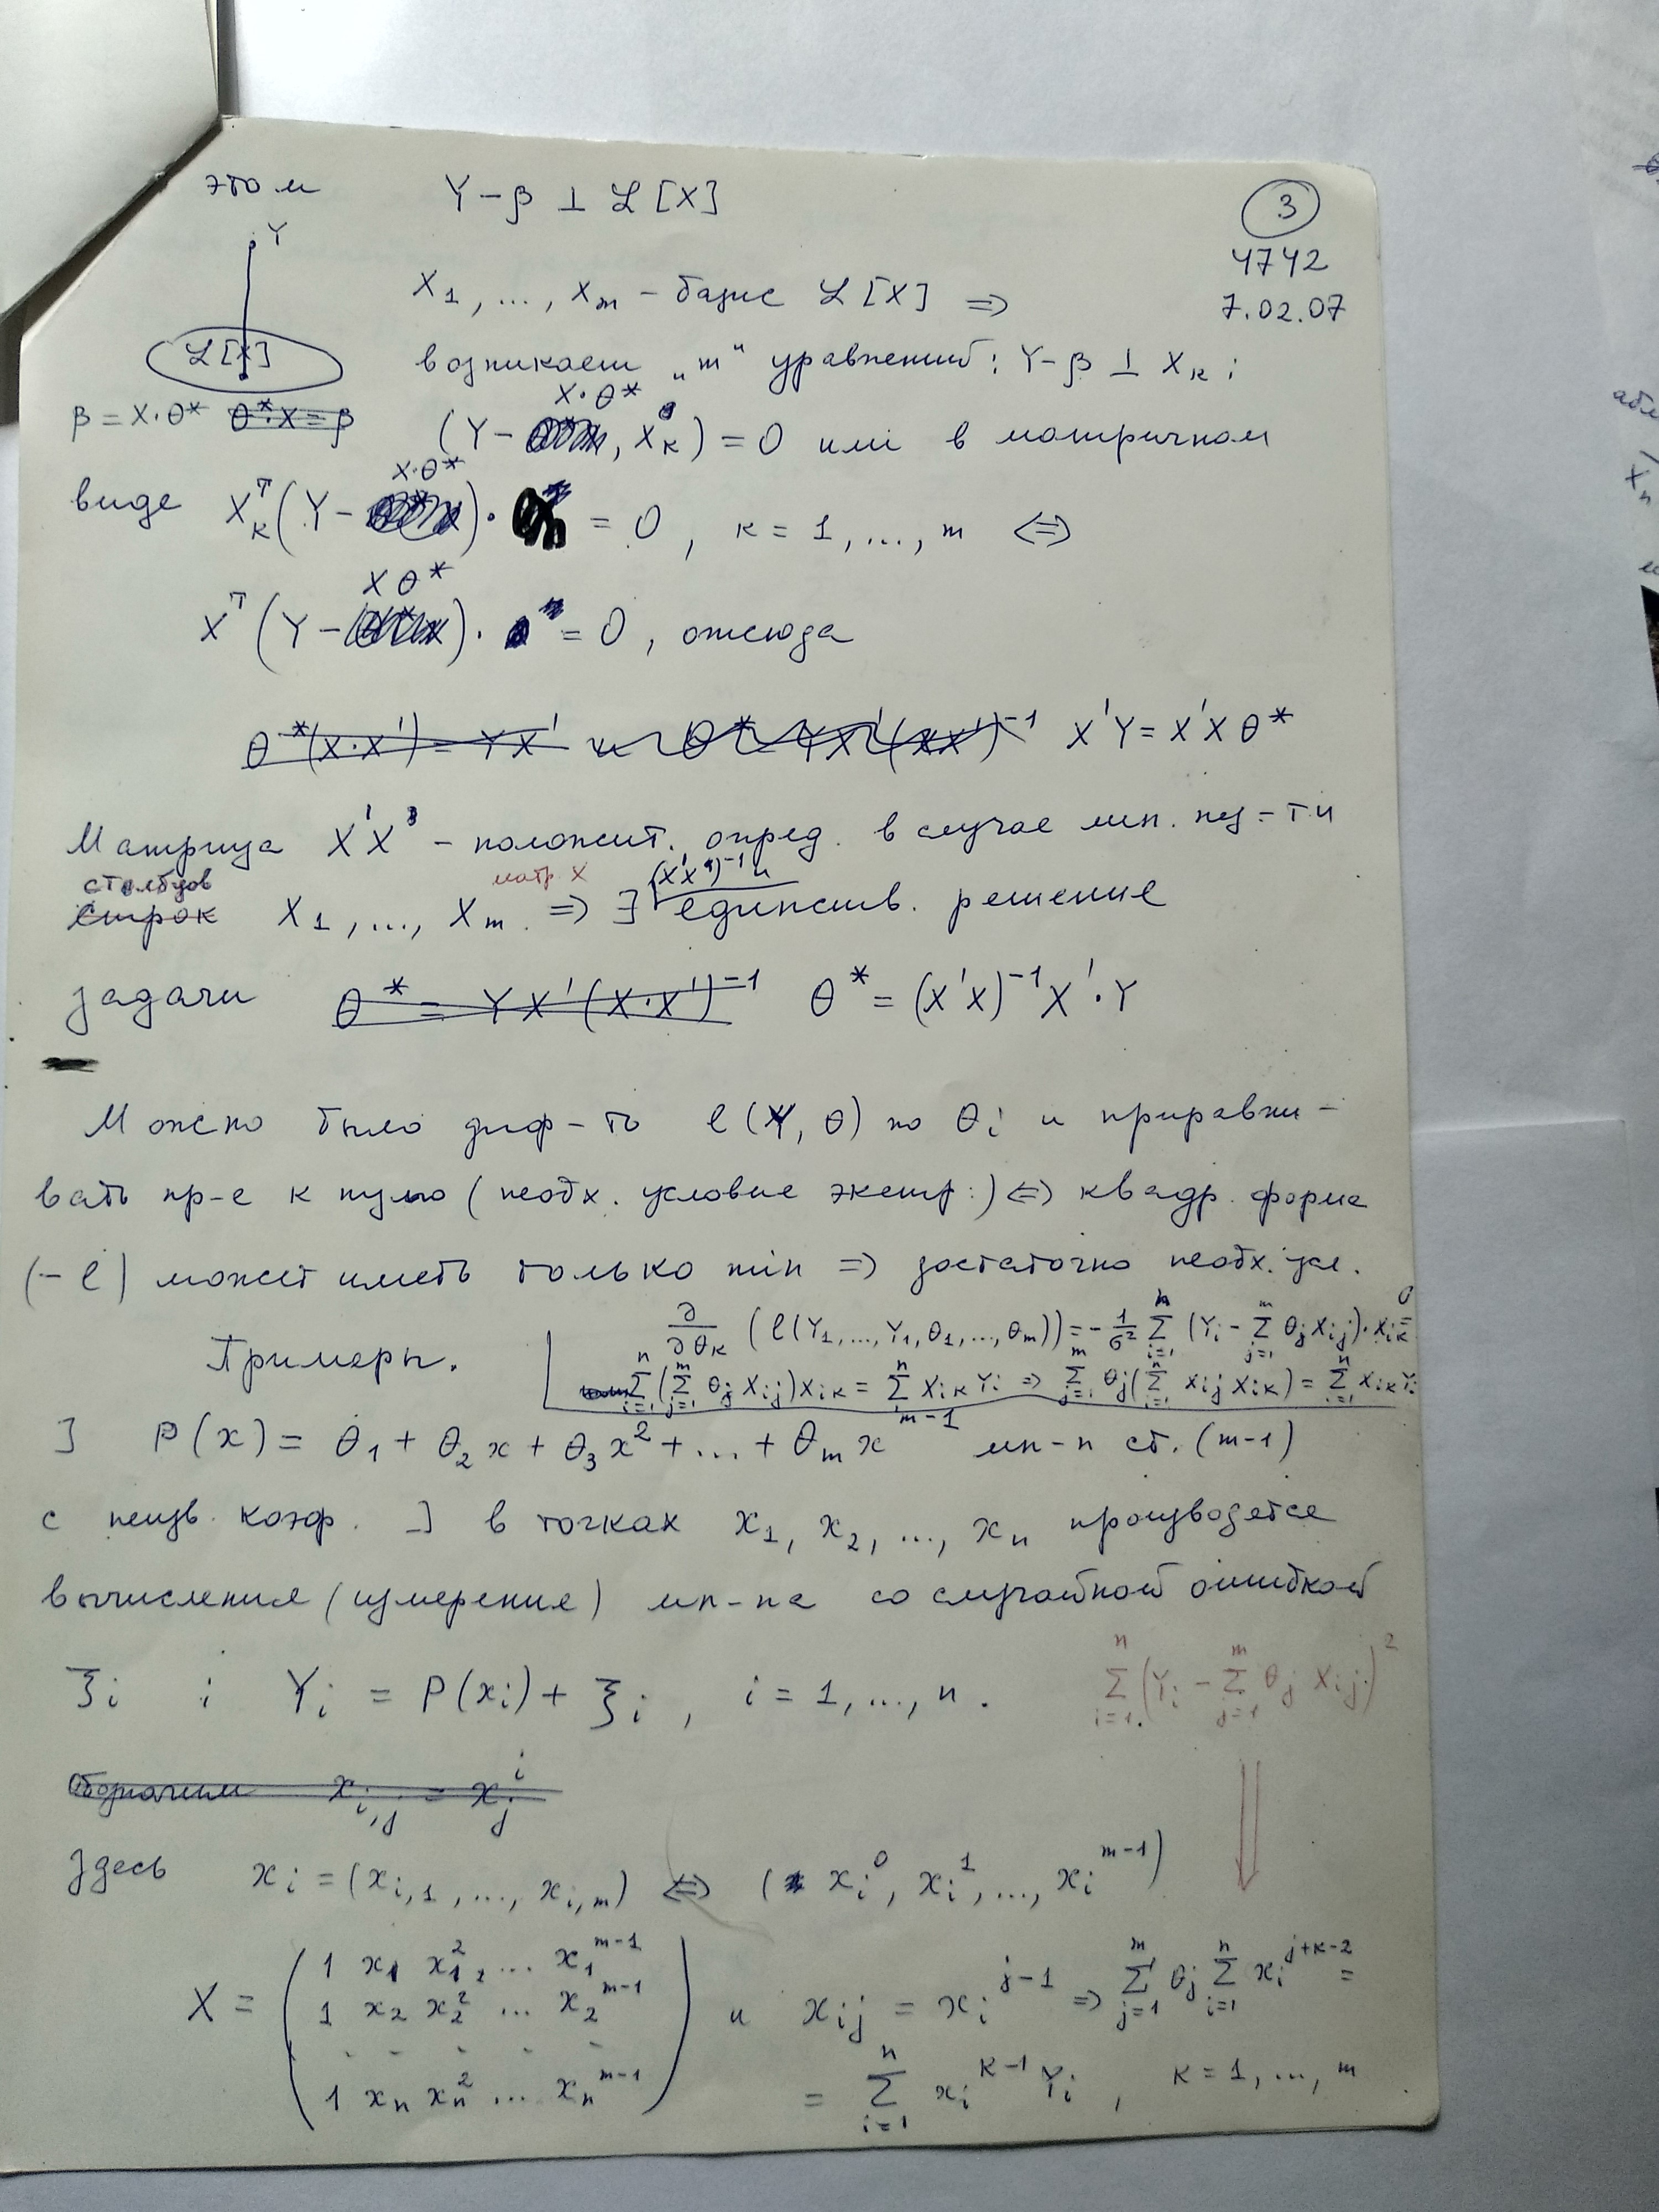 этом Y-β ⊥ ℒ[X] ③
4742
7.02.07
Y
ℒ[X]
X₁, ..., Xₘ - базис ℒ[X] =>
возникает „m" уравнений: Y-β ⊥ Xₖ;
β = X·θ* θ*·X = β
X·θ*
(Y- , Xₖ) = 0 или в матричном
X·θ*
виде Xₖᵀ(Y- )· = 0, k = 1, ..., m <=>
Xθ*
Xᵀ(Y- )· = 0, отсюда
θ*(X·X') = YX' и θ* = YX'(XX')⁻¹ X'Y = X'Xθ*
Матрица X'X - положит. опред. в случае лин. нез-ти
столбцов матр X (X'X)⁻¹ и
строк X₁, ..., Xₘ. => ∃ единств. решение
задачи θ* = YX'(X·X')⁻¹ θ* = (X'X)⁻¹X'·Y
Можно было диф-ть l(Y, θ) по θᵢ и приравни-
вать пр-е к нулю (необх. условие экстр.) <=> квадр. форма
(-l) может иметь только min => достаточно необх. усл.
∂/∂θₖ (l(Y₁, ..., Y₁, θ₁, ..., θₘ)) = -1/σ² Σᵢ₌₁ⁿ (Yᵢ - Σⱼ₌₁ᵐ θⱼ Xᵢⱼ)·Xᵢₖ = 0
Примеры.
Σᵢ₌₁ⁿ (Σⱼ₌₁ᵐ θⱼ Xᵢⱼ)Xᵢₖ = Σⁿ Xᵢₖ Yᵢ => Σⱼ₌₁ᵐ θⱼ(Σᵢ₌₁ⁿ Xᵢⱼ Xᵢₖ) = Σᵢ₌₁ⁿ Xᵢₖ Yᵢ
] P(x) = θ₁ + θ₂x + θ₃x² + ... + θₘxᵐ⁻¹ мн-н ст. (m-1)
с неизв. коэф. ] в точках x₁, x₂, ..., xₙ производится
вычисления (измерение) мн-на со случайной ошибкой
ξᵢ : Yᵢ = P(xᵢ) + ξᵢ, i = 1, ..., n.
Σᵢ₌₁ⁿ (Yᵢ - Σⱼ₌₁ᵐ θⱼ Xᵢⱼ)²
Обозначим xᵢ,ⱼ = xⱼⁱ
Здесь xᵢ = (xᵢ,₁, ..., xᵢ,ₘ) <=> (xᵢ⁰, xᵢ¹, ..., xᵢᵐ⁻¹)
1 x₁ x₁² ... x₁ᵐ⁻¹
X = 1 x₂ x₂² ... x₂ᵐ⁻¹ и xᵢⱼ = xᵢʲ⁻¹ => Σⱼ₌₁ᵐ θⱼ Σᵢ₌₁ⁿ xᵢʲ⁺ᵏ⁻² =
1 xₙ xₙ² ... xₙᵐ⁻¹ = Σᵢ₌₁ⁿ xᵢᵏ⁻¹ Yᵢ, k = 1, ..., m